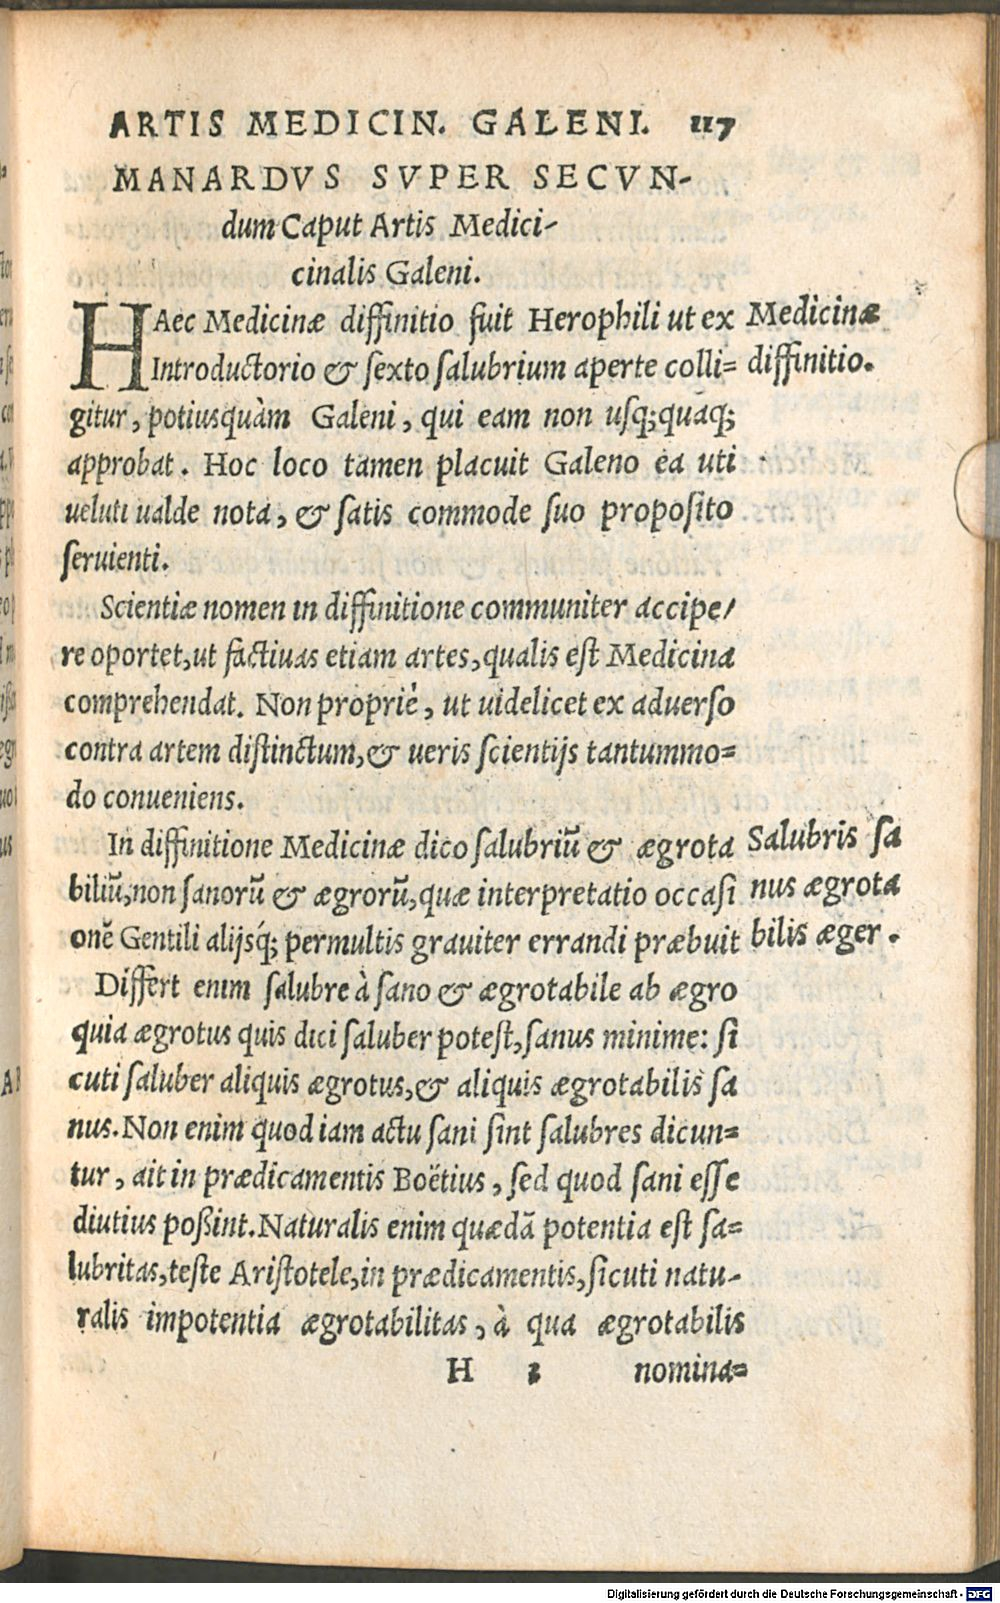 ARTIS MEDICIN. GALENI. 117
MANARDVS SVPER SECVN-
dum Caput Artis Medici-
cinalis Galeni.
HAec Medicinæ diffinitio fuit Herophili ut ex
Introductorio & sexto salubrium aperte colli=
gitur, potiusquàm Galeni, qui eam non usq;quāq;
approbat. Hoc loco tamen placuit Galeno ea uti
ueluti ualde nota, & satis commode suo proposito
seruienti.
Medicinæ
diffinitio.
Scientiæ nomen in diffinitione communiter accipe/
re oportet, ut factiuas etiam artes, qualis est Medicina
comprehendat. Non propriè, ut uidelicet ex aduerso
contra artem distinctum, & ueris scientijs tantummo=
do conueniens.
In diffinitione Medicinæ dico salubriū & ægrota
biliū, non sanorū & ægrorū, quæ interpretatio occasi
onē Gentili alijsq́; permultis grauiter errandi præbuit
Salubris sa
nus ægrota
bilis æger.
Differt enim salubre à sano & ægrotabile ab ægro
quia ægrotus quis dici saluber potest, sanus minime: si
cuti saluber aliquis ægrotus, & aliquis ægrotabilis sa
nus. Non enim quod iam actu sani sint salubres dicun=
tur, ait in prædicamentis Boëtius, sed quod sani esse
diutius poßint. Naturalis enim quædā potentia est sa=
lubritas, teste Aristotele, in prædicamentis, sicuti natu-
ralis impotentia ægrotabilitas, à qua ægrotabilis
H 3 nomina=
Digitalisierung gefördert durch die Deutsche Forschungsgemeinschaft - DFG